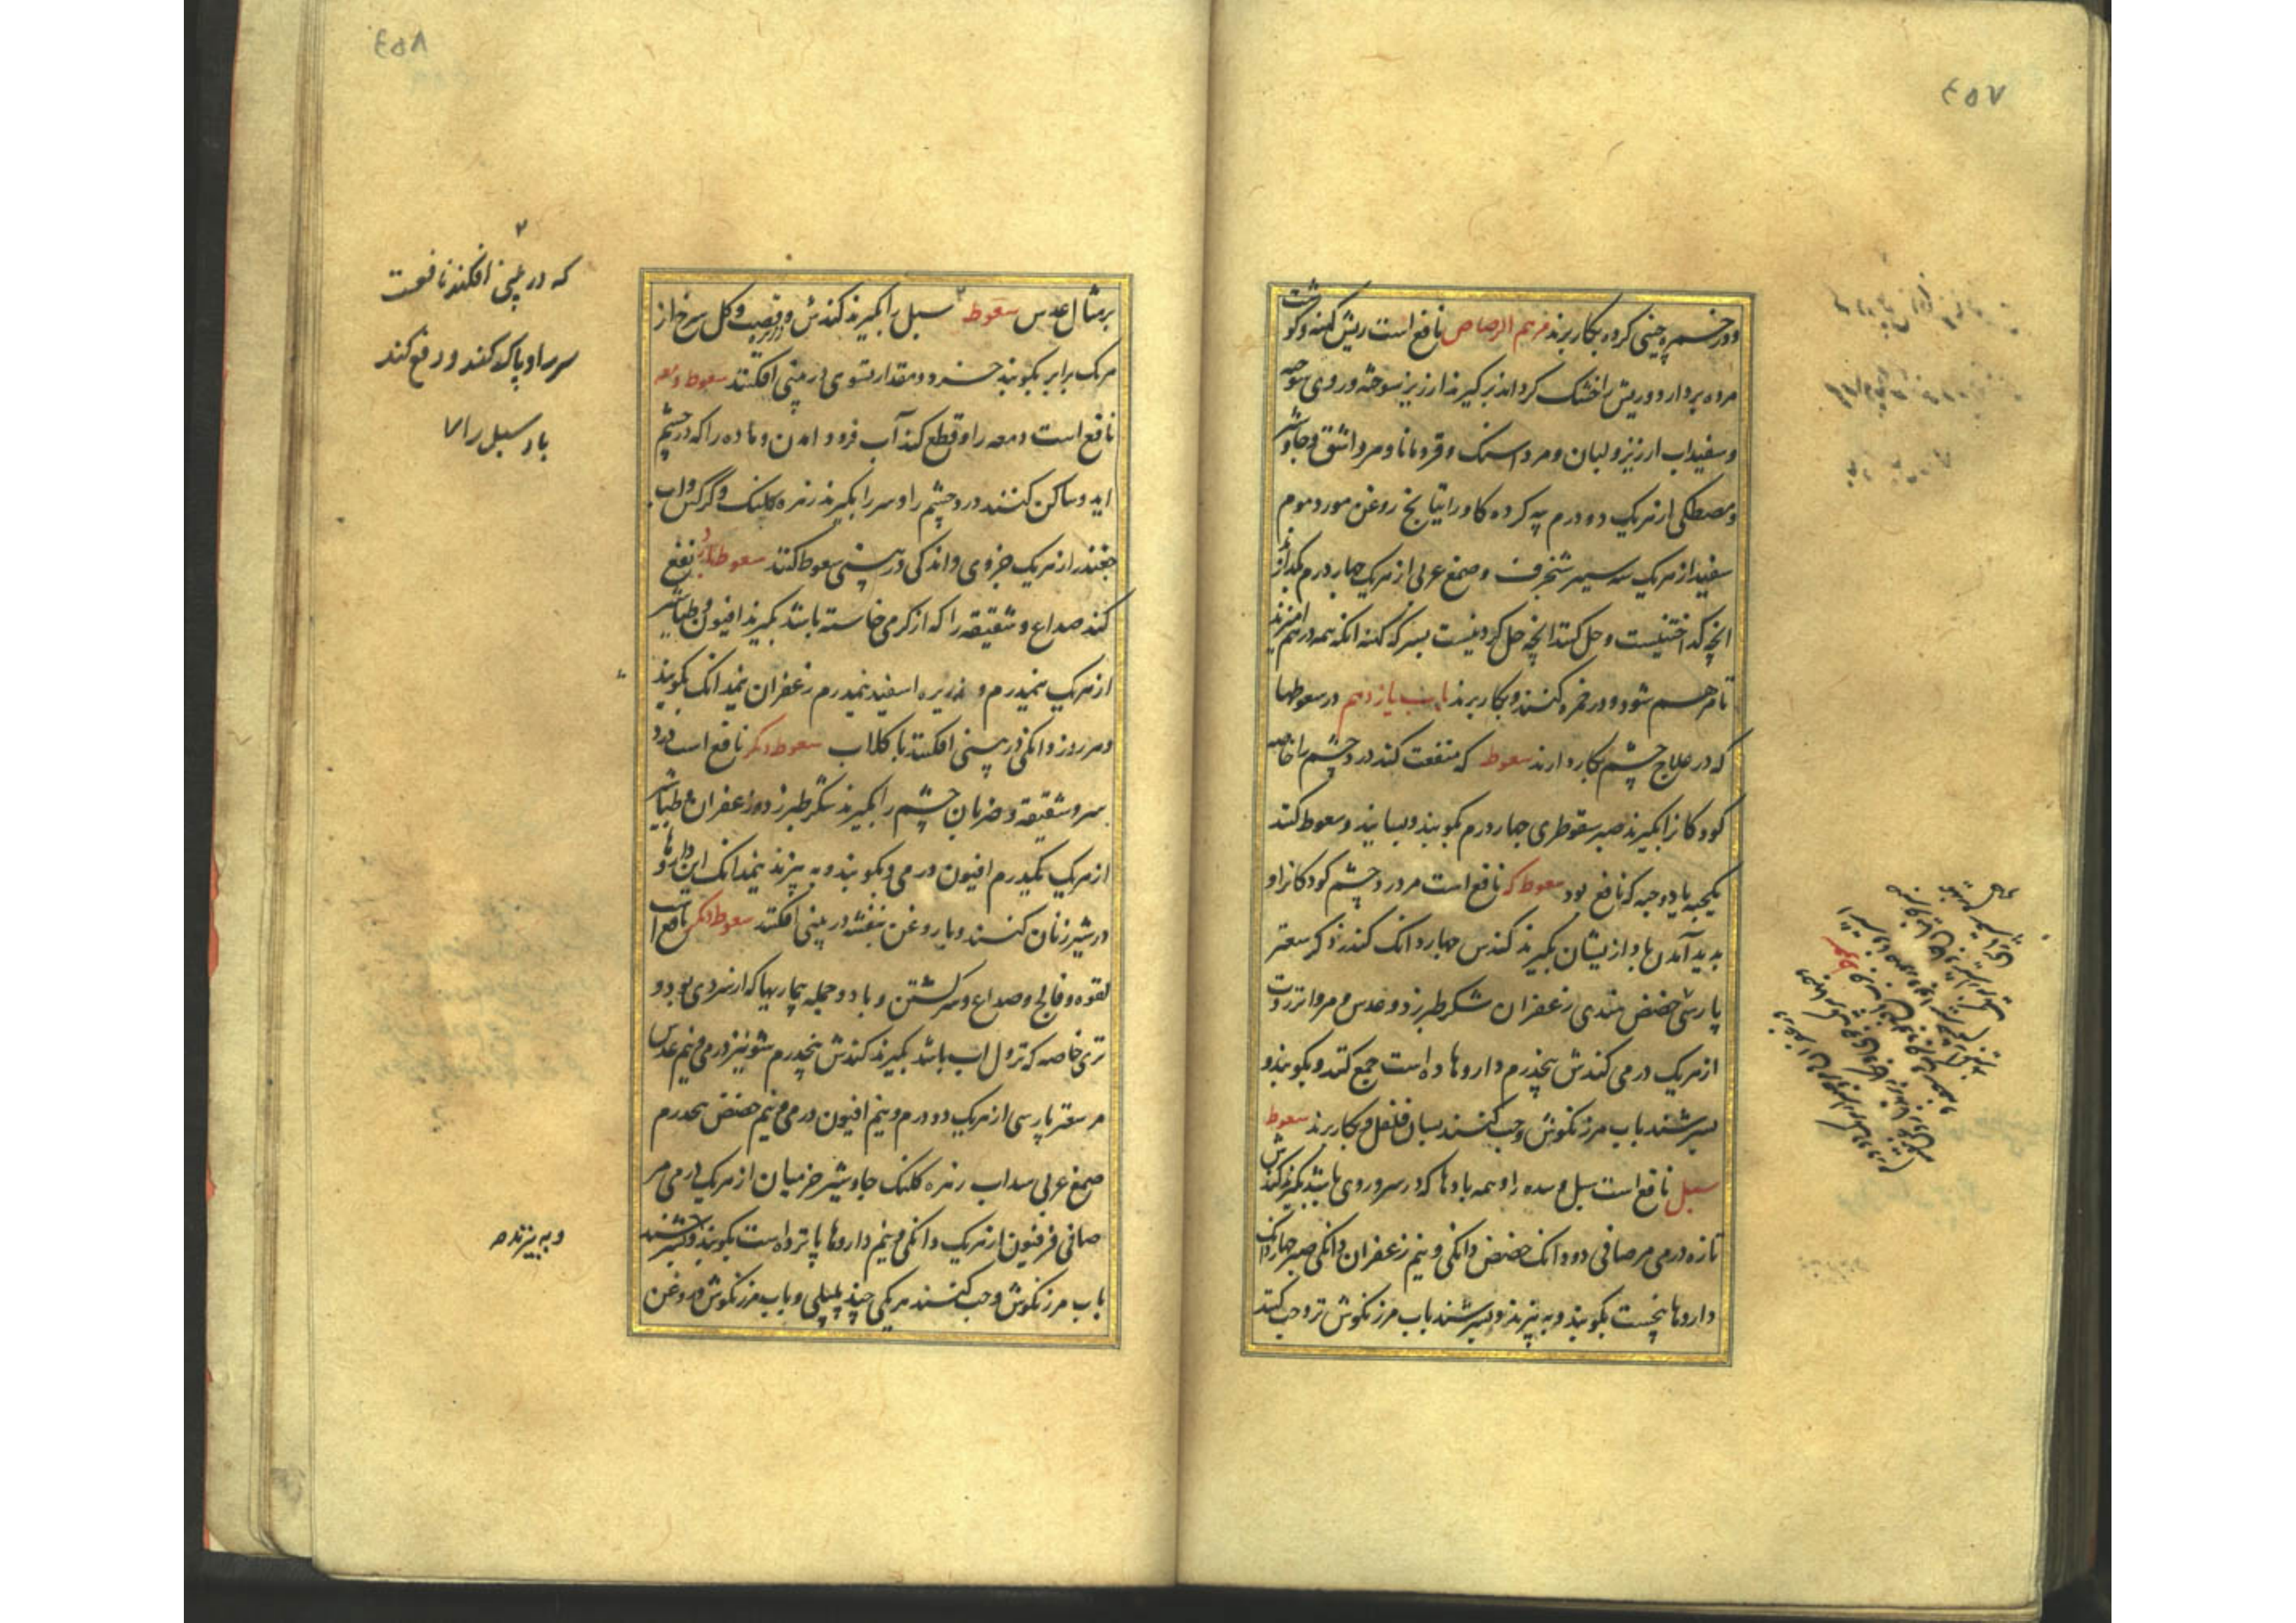 ٤٥٧
ودر خمره چینی کرده بکار برند مرهم الرصاص نافع است ریش کهنه وکوشت
مرده بردارد وریش را خشک کرداند بکیرند ارزیز سوخته وروی سوخته
وسفیداب ارزیز ولبان ومرداسنک وقردمانا ومر واشق وجاوشیر
ومصطکی از هریک ده درم پیه کرده کاو راتیانج روغن مورد وموم
سفید از هریک سه سیر شنجرف وصمغ عربی از هریک چهار درم بکدازند
انچه کداختنیست وحل کنند انچه حل کردنیست بسرکه کهنه انکه همه درهم امیزند
تا مرهم شود ودر خمره کنند وبکار برند باب یازدهم در سعوطها
که در علاج چشم بکار دارند سعوط که منفعت کند درد چشم را خاصه
کودکانرا بکیرند صبر سقوطری چهار درم بکوبند وبسایند وسعوط کنند
یکحبه یا دو حبه که نافع بود سعوط که نافع است مر درد چشم کودکانرا و
بدید آمدن باد از یشان بکیرند کندس چهار دانک کندر ذکر سعتر
پارسی حضض هندی زعفران شکر طبرزد وعدس ومر وانزروت
از هریک درمی کندش پنجدرم داروها ده است جمع کنند وبکوبند و
بسرشند باب مرزنکوش وحب کنند بسان فلفل وبکار برند سعوط
سبل نافع است سبل وسده را وهمه بادها که در سر وروی باشد بکیرند کندش
تازه درمی مر صافی دو دانک حضض دانکی ونیم زعفران دانکی صبر چهار دانک
داروها پنجست بکوبند وبه بیزند وبسرشند باب مرزنکوش تر وحب کنند
٤٥٨
بر مثال عدس سعوط سبل را بکیرند کندش وقصب وکل سرخ از
هریک برابر بکوبند خرد ومقدار تسوی در بینی افکنند سعوط دمعه
نافع است دمعه را وقطع کند آب فرود امدن وماده را که در چشم
اید وساکن کنند درد چشم را وسر را بکیرند زهره کلنک وکرکس واب
چغندر از هریک جزوی واندکی در بینی سعوط کنند سعوط دیکر نفع
کند صداع وشقیقه را که از کرمی خاسته باشد بکیرند افیون وطباشیر
از هریک نیمدرم و زریره اسفید نیمدرم زعفران نیمدانک بکوبند
وهر روز دانکی در بینی افکنند با کلاب سعوط دیکر نافع است درد
سر وشقیقه وضربان چشم را بکیرند شکر طبرزد وزعفران وطباشیر
از هریک یکدرم افیون درمی وبکوبند وبه بیزند نیمدانک این دارو
در شیر زنان کنند ویا روغن بنفشه در بینی افکنند سعوط دیکر نافع است
لقوه وفالج وصداع وسر کشتن وباد وجمله بیماریها که از سردی بود و
تری خاصه که نزول اب باشد بکیرند کندش پنجدرم شونیز درمی ونیم عدس
مر سعتر پارسی از هریک دو درم ونیم افیون درمی ونیم حضض پنجدرم
صمغ عربی سداب زهره کلنک جاوشیر خرمیان از هریک درمی مر
صافی فرفیون از هریک دانکی ونیم داروها پانزده است بکوبند وبسرشند
باب مرزنکوش وحب کنند هریکی چند پلپلی وباب مرزنکوش وروغن
که در بینی افکنند نافعست
سر را و پاک کند و دفع کند
باد سبل را
وبه بیزند